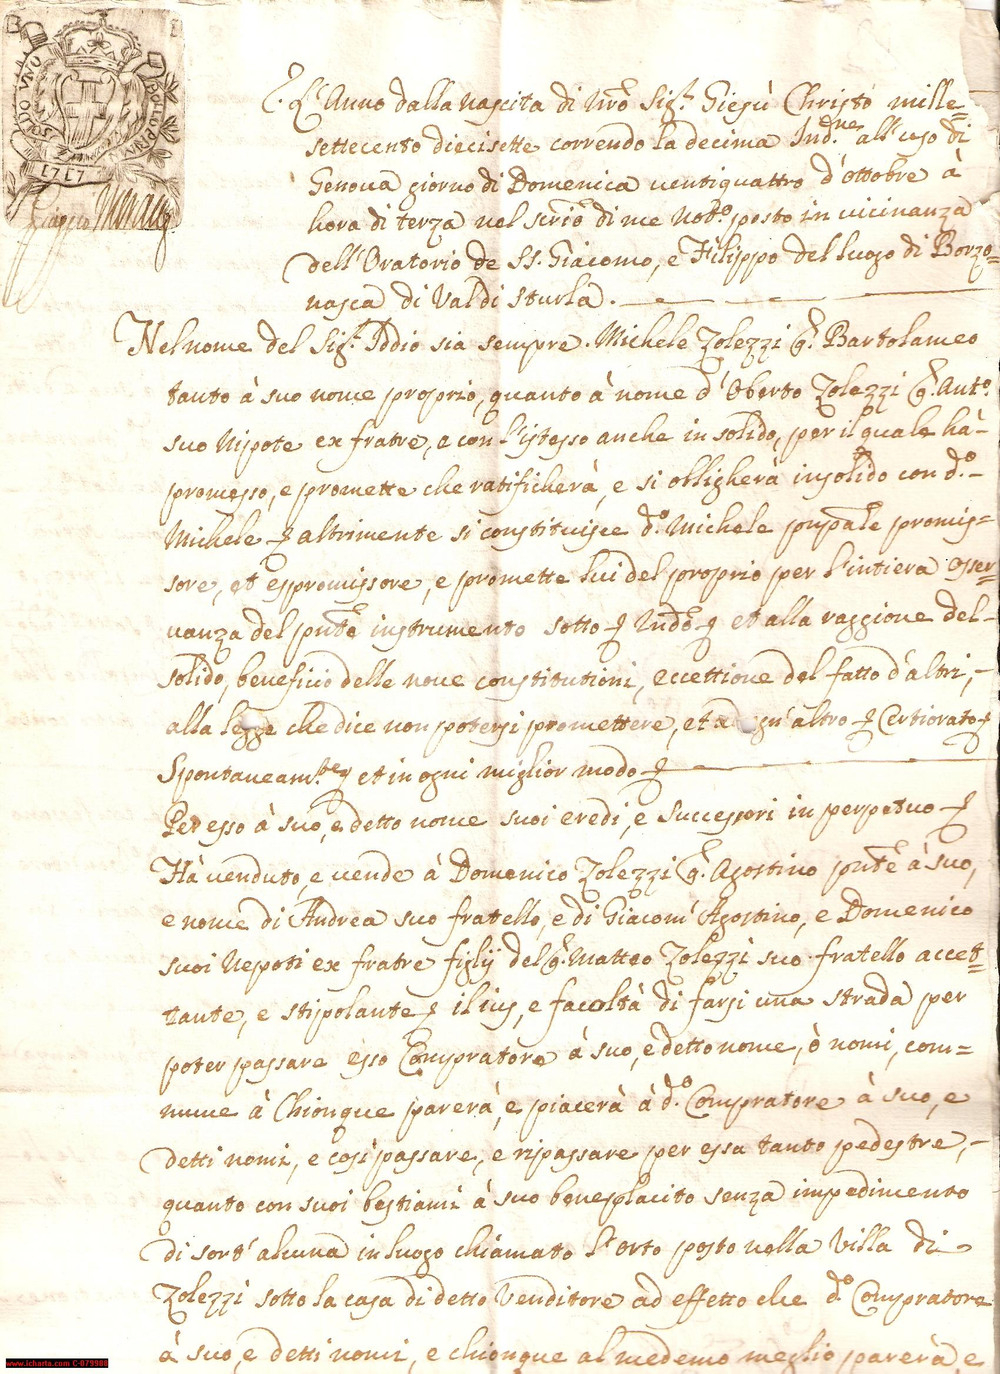 SOLDO UNO
1717
L'Anno dalla nascita di nro Sig.r Giesù Christo mille=
settecento diecisette correndo la decima Ind.ne all'uso di
Genova giorno di Domenica ventiquattro d'ottobre à
hora di terza nel scrio di me Not.o posto in vicinanza
dell'Oratorio de SS. Giacomo, e Filippo del luogo di Borzo=
nasca di Val di Sturla.
Nel nome del Sig.r Iddio sia sempre. Michele Zolezzi q. Bartolameo
tanto à suo nome proprio, quanto à nome d'Oberto Zolezzi q. Ant.o
suo Nipote ex fratre, e con l'istesso anche in solido, per il quale hà
promesso, e promette che ratificherà, e si obligherà in solido con d.o
Michele altrimente si constituisce d.o Michele pnpale promis=
sore, et espromissore, e promette lui del proprio per l'intiera osser=
vanza del pnte instrumento sotto et alla raggione del
solido, beneficio delle nove constitutioni, eccettione del fatto d'altri,
alla legge che dice non potersi promettere, et ad ogn'altro Certiorato
Spontaneam.te et in ogni miglior modo
Per esso à suo, e detto nome suoi eredi, e Successori in perpetuo
Hà venduto, e vende à Domenico Zolezzi q. Agostino pnte à suo,
e nome di Andrea suo fratello, e di Giacom' Agostino, e Domenico
suoi Nepoti ex fratre figlij del q. Matteo Zolezzi suo fratello accet=
tante, e stipolante il ius, e facoltà di farsi una strada per
poter passare esso Compratore à suo, e detto nome, ò nomi, com=
mune à Chionque parerà, e piacerà à d.o Compratore à suo, e
detti nomi, e così passare, e ripassare per essa tanto pedestre,
quanto con suoi bestiami à suo beneplacito senza impedimento
di sort' alcuna in luogo chiamato l'orto posto nella Villa di
Zolezzi sotto la casa di detto Venditore ad effetto che d.o Compratore
à suo, e detti nomi, e chionque al medemo meglio parerà, e
www.icharta.com C-079988